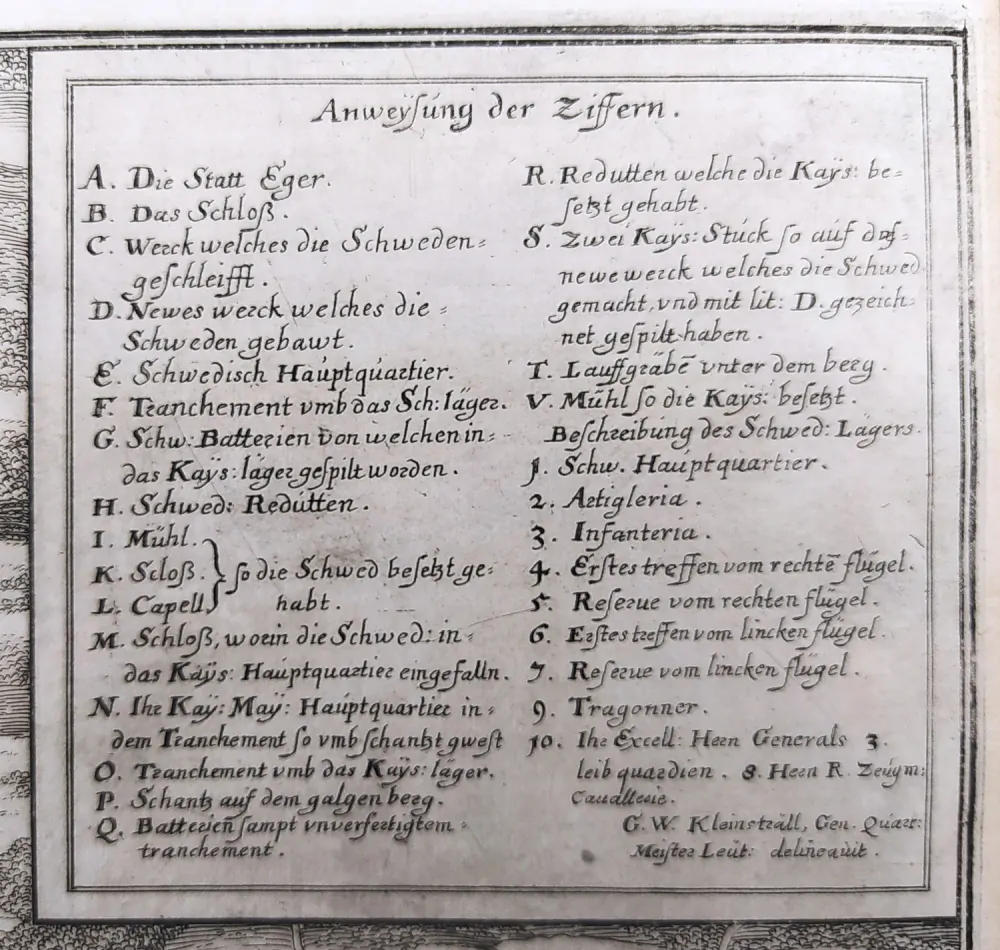 Anweÿsung der Ziffern.
A. Die Statt Eger.
B. Das Schloß.
C. Werck welches die Schweden=
geschleifft.
D. Newes werck welches die =
Schweden gebawt.
E. Schwedisch Hauptquartier.
F. Tranchement vmb das Sch: läger.
G. Schw: Batterien von welchen in=
das Kaÿs: läger gespilt worden.
H. Schwed: Redutten.
I. Mühl.
K. Scloß. } so die Schwed besetzt ge=
L. Capell habt.
M. Schloß, worin die Schwed: in=
das Kaÿs: Hauptquartier eingefalln.
N. Ihr Kaÿ: Maÿ: Hauptquartier in=
dem Tranchement so vmbschantzt gwest
O. Tranchement vmb das Kaÿs: läger.
P. Schantz auf dem galgen berg.
Q. Batterien sampt vnverfertigtem =
tranchement.
R. Redutten welche die Kaÿs: be=
setzt gehabt.
S. Zwei Kaÿs: Stuck so auf das=
newe werck welches die Schwed
gemacht, vnd mit lit: D. gezeich=
net gespilt haben.
T. Lauffgräbē vnter dem berg.
V. Mühl so die Kaÿs: besetzt.
Beschreibung des Schwed: Lägers.
1. Schw. Hauptquartier.
2. Artigleria.
3. Infanteria.
4. Erstes treffen vom rechtē flügel.
5. Reserue vom rechten flügel.
6. Erstes treffen vom lincken flügel.
7. Reserue vom lincken flügel.
9. Tragonner.
10. Ihr Excell: Herrn Generals 3.
leib quardien. 8. Herrn R. Zeügm:
Cauallerie.
G. W. Kleinsträll, Gen. Quart:
Meister Leüt: delineauit.